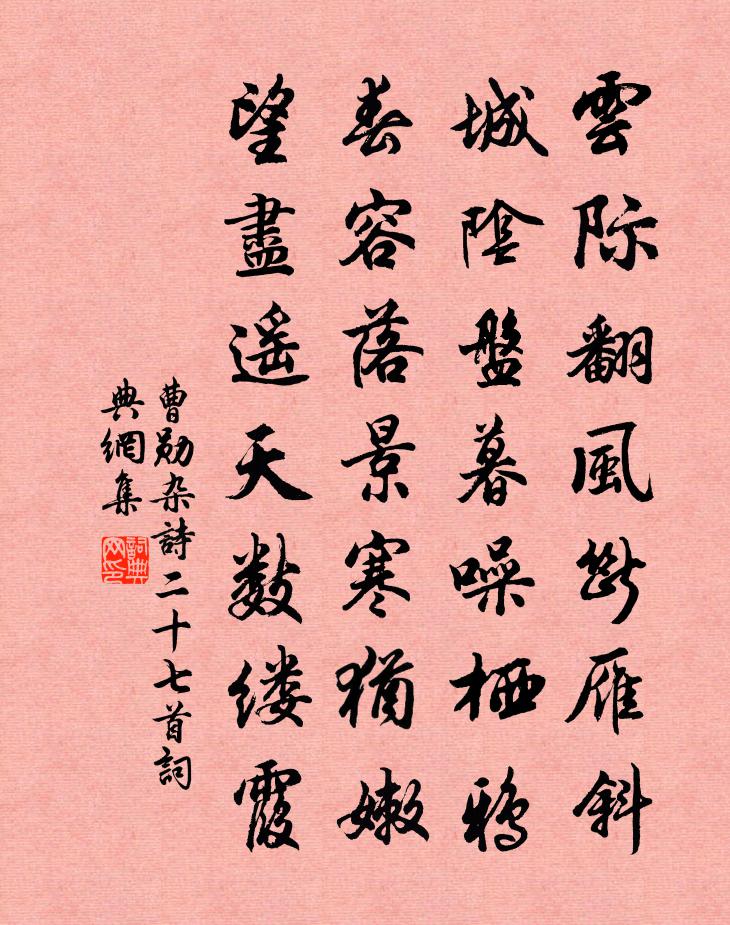 雲際翻風斷雁斜
城陰盤暮噪栖鴉
春容落景寒猶嫩
望盡遥天數缕霞
曹勛杂詩二十七首詞
典網集
詞典
网印